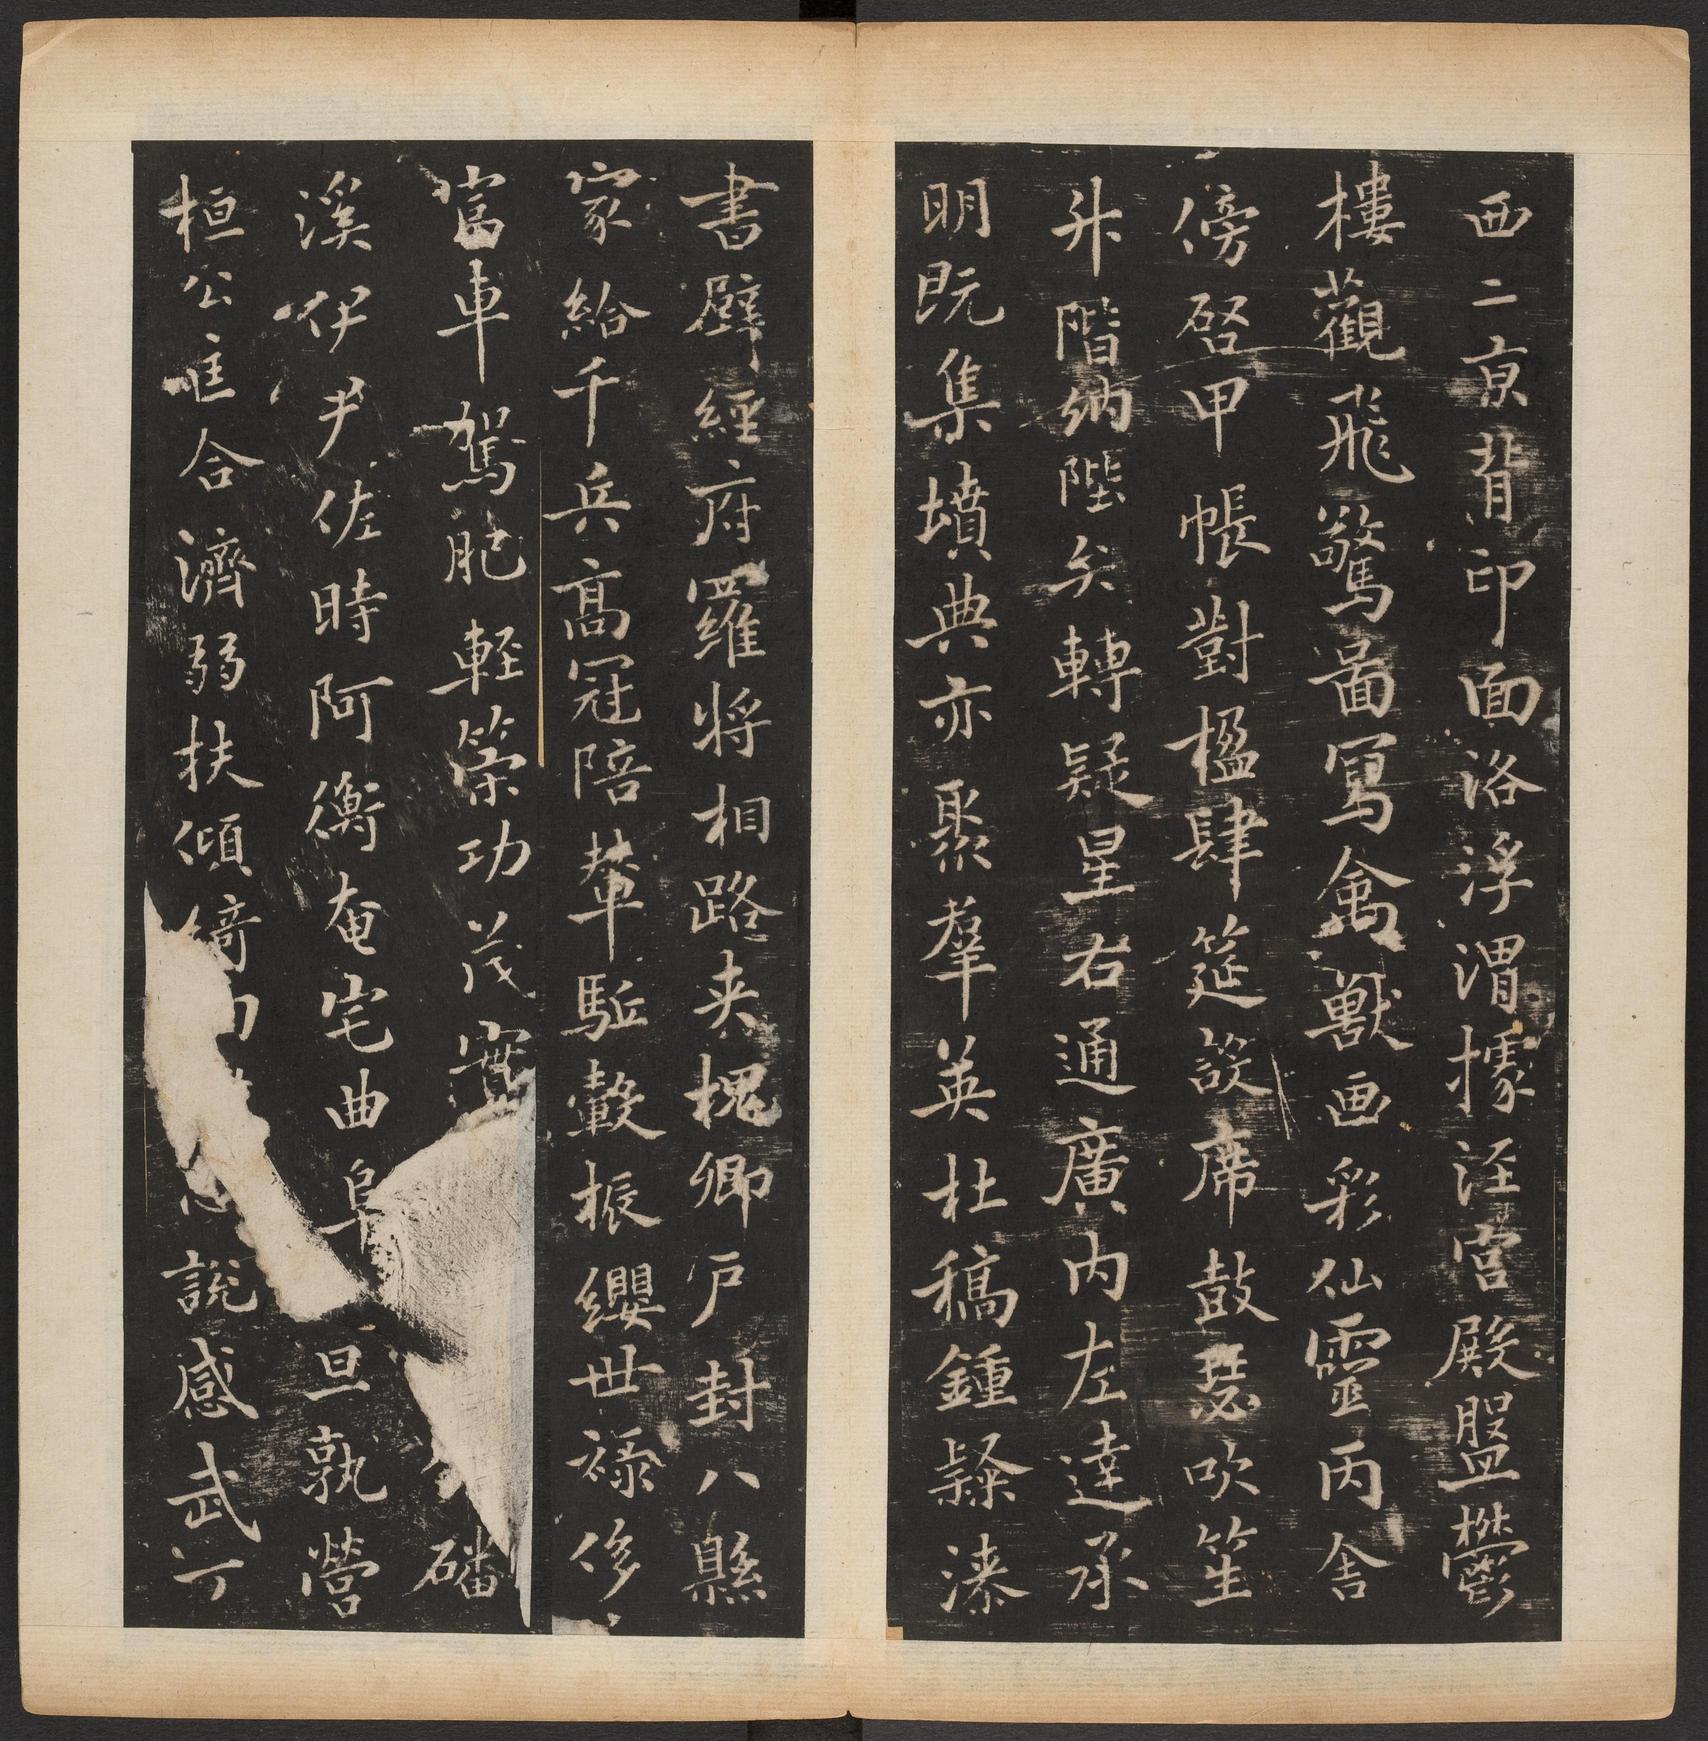 西二京背邙面洛浮渭據涇宮殿盤鬱
樓觀飛驚啚寫禽獸画彩仙靈丙舍
傍啓甲帳對楹肆筵設席鼓瑟吹笙
升階納陛弁轉疑星右通廣內左達承
明既集墳典亦聚羣英杜稿鍾隸漆
書壁經府羅將相路夾槐卿戶封八縣
家給千兵高冠陪輦駈轂振纓世祿侈
富車駕肥輕策功茂實磻
溪伊尹佐時阿衡奄宅曲阜旦孰營
桓公匡合濟弱扶傾綺說感武丁